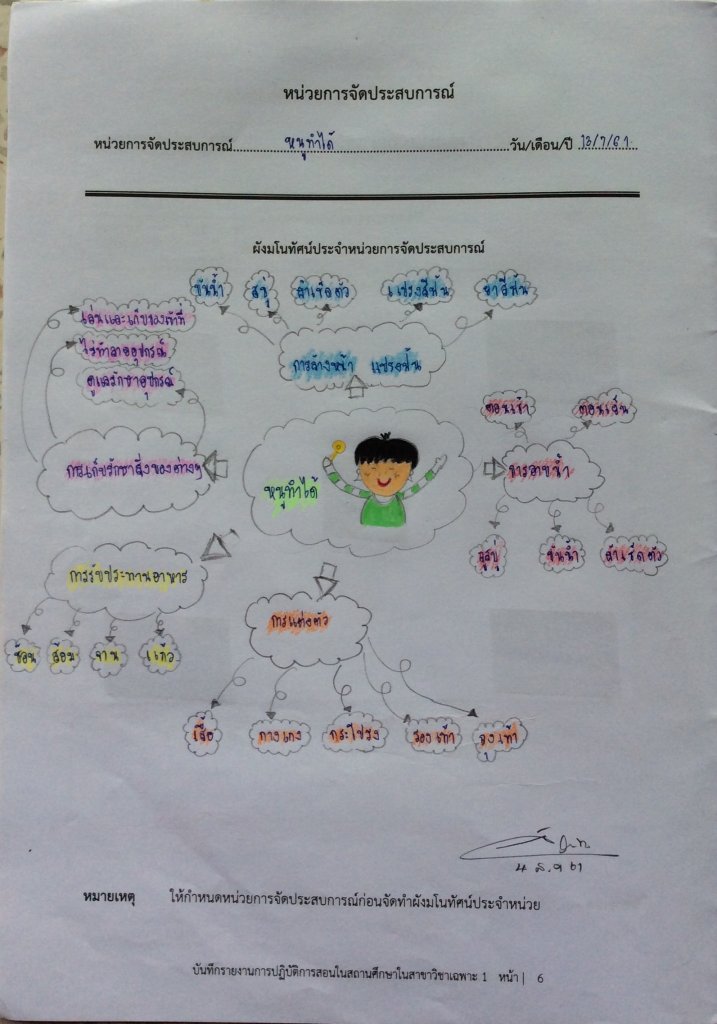 หน่วยการจัดประสบการณ์
หน่วยการจัดประสบการณ์ หนูทำได้ วัน/เดือน/ปี 13/7/61
ผังมโนทัศน์ประจำหน่วยการจัดประสบการณ์
ขันน้ำ สบู่ ผ้าเช็ดตัว แปรงสีฟัน ยาสีฟัน
เล่นและเก็บของเข้าที่
ไม่ทำลายอุปกรณ์
ดูแลรักษาอุปกรณ์
การล้างหน้า แปรงฟัน
ตอนเช้า ตอนเย็น
การเก็บรักษาสิ่งของต่างๆ
หนูทำได้
การอาบน้ำ
สบู่ ขันน้ำ ผ้าเช็ดตัว
การรับประทานอาหาร
การแต่งตัว
ช้อน ส้อม จาน แก้ว
เสื้อ กางเกง กระโปรง รองเท้า ถุงเท้า
หมายเหตุ ให้กำหนดหน่วยการจัดประสบการณ์ก่อนจัดทำผังมโนทัศน์ประจำหน่วย
บันทึกรายงานการปฏิบัติการสอนในสถานศึกษาในสาขาวิชาเฉพาะ 1 หน้า | 6